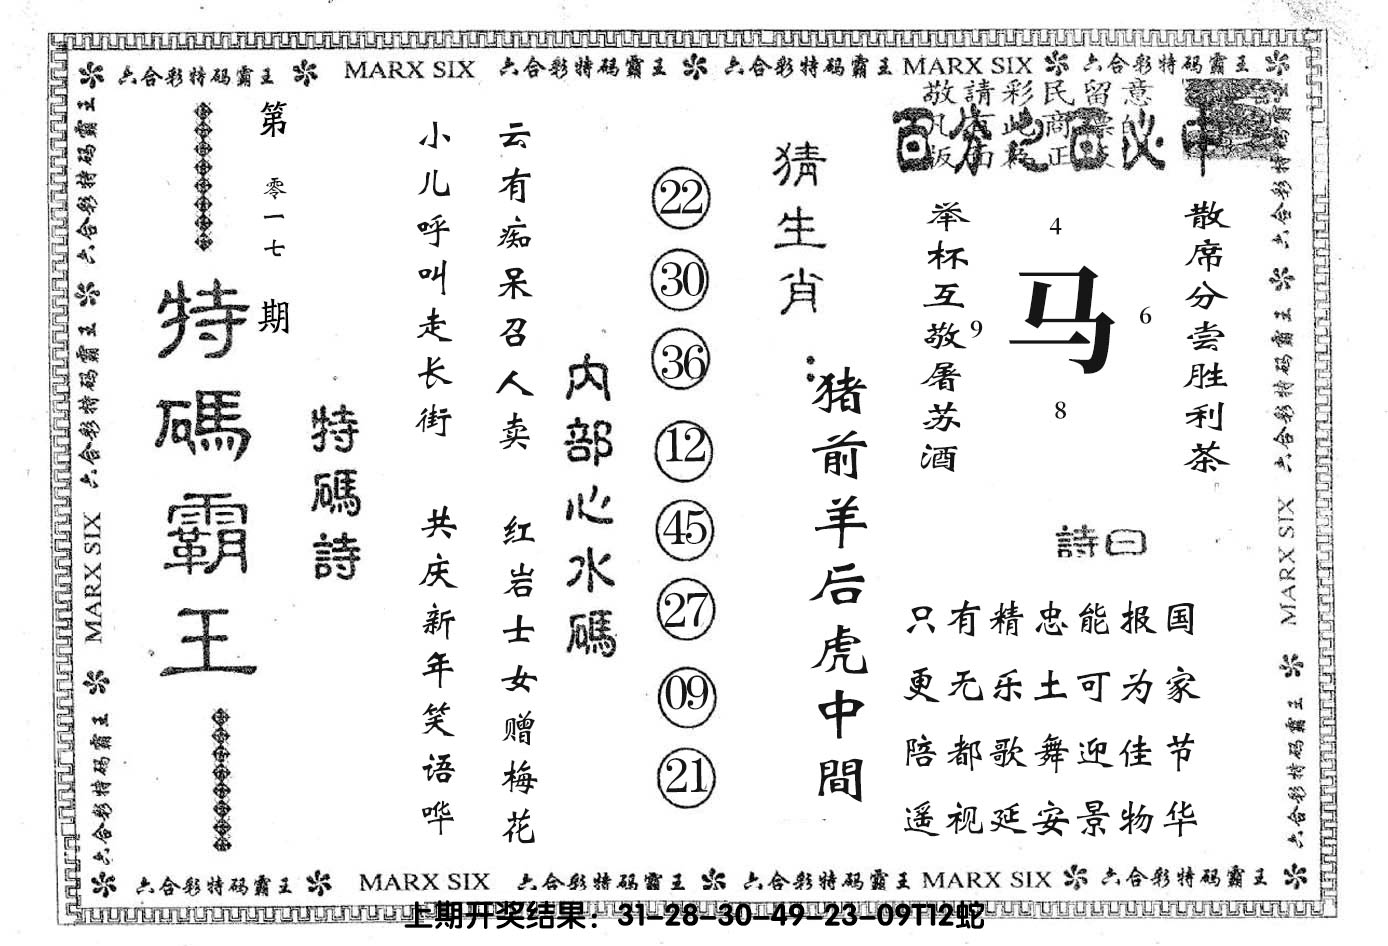 六合彩特码霸王 MARX SIX 六合彩特码霸王 六合彩特码霸王 MARX SIX 六合彩特码霸王
敬請彩民留意
百分之百必中
散席分尝胜利茶
举杯互敬屠苏酒
4
马
9
6
8
詩曰
只有精忠能报国
更无乐土可为家
陪都歌舞迎佳节
遥视延安景物华
猜生肖:
猪前羊后虎中間
22
30
36
12
45
27
09
21
内部心水碼
云有痴呆召人卖 红岩士女赠梅花
小儿呼叫走长街 共庆新年笑语哗
特碼詩
第零一七期
特碼霸王
六合彩特码霸王 六合彩特码霸王 MARX SIX 六合彩特码霸王
六合彩特码霸王 六合彩特码霸王 MARX SIX 六合彩特码霸王
六合彩特码霸王 MARX SIX 六合彩特码霸王 六合彩特码霸王 MARX SIX 六合彩特码霸王
上期开奖结果：31-28-30-49-23-09T12蛇